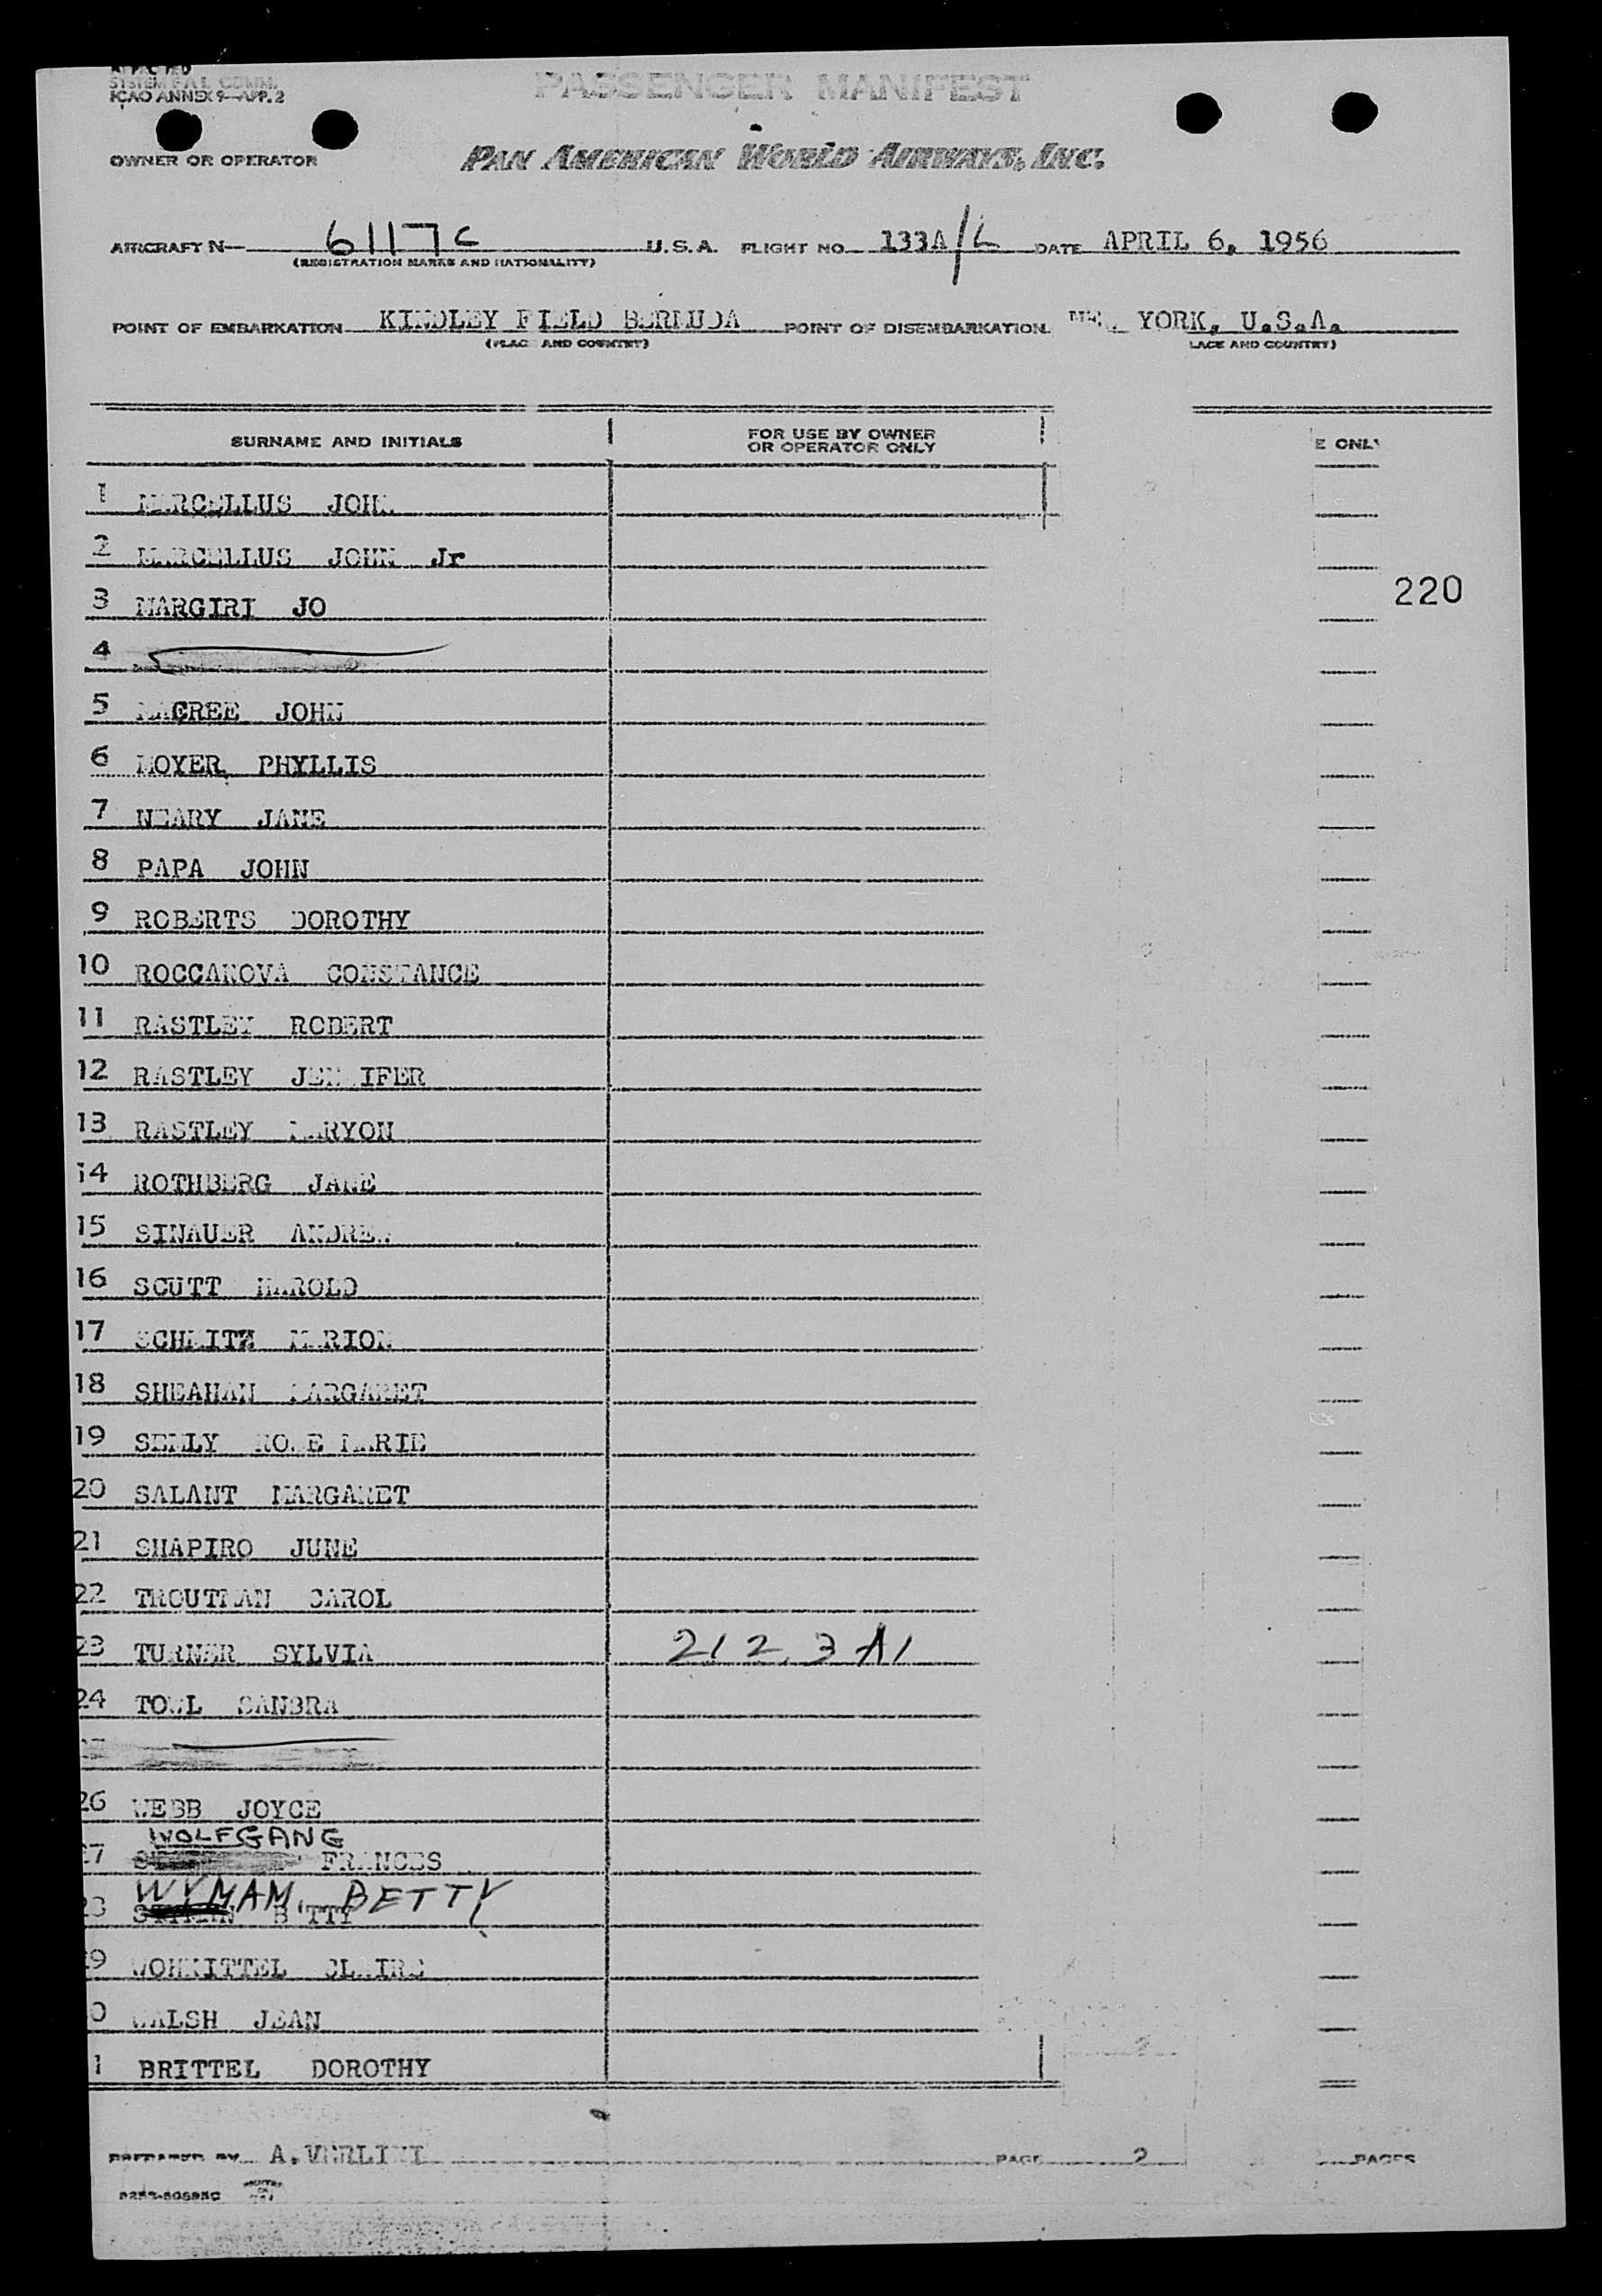 SYSTEM FAL COMM.
ICAO ANNEX 9—APP. 2
PASSENGER MANIFEST
OWNER OR OPERATOR PAN AMERICAN WORLD AIRWAYS, INC.
AIRCRAFT N— 6117C U.S.A. FLIGHT NO. 133A/L DATE APRIL 6, 1956
(REGISTRATION MARKS AND NATIONALITY)
POINT OF EMBARKATION KINDLEY FIELD BERMUDA POINT OF DISEMBARKATION YORK, U.S.A.
(PLACE AND COUNTRY) LACE AND COUNTRY)
SURNAME AND INITIALS FOR USE BY OWNER OR OPERATOR ONLY E ONLY
1 MARCELLUS JOHN
2 MARCELLUS JOHN Jr
220
3 MARGIRI JO
4
5 MACREE JOHN
6 MOYER PHYLLIS
7 NEARY JANE
8 PAPA JOHN
9 ROBERTS DOROTHY
10 ROCCANOVA CONSTANCE
11 RASTLEY ROBERT
12 RASTLEY JENNIFER
13 RASTLEY MARYON
14 ROTHBERG JANE
15 SINAUER ANDREW
16 SCUTT HAROLD
17 MARION
18 SHEAHAN MARGARET
19 ROSE MARIE
20 SALANT MARGARET
21 SHAPIRO JUNE
22 TROUTMAN CAROL
23 TURNER SYLVIA 212.3 A1
24 SANBRA
26 WEBB JOYCE
WOLFGANG
27 FRANCES
WYMAM, BETTY
28 BETTY
29 CLAIRE
0 WALSH JEAN
1 BRITTEL DOROTHY
PREPARED BY A. PAGE 2 PAGES